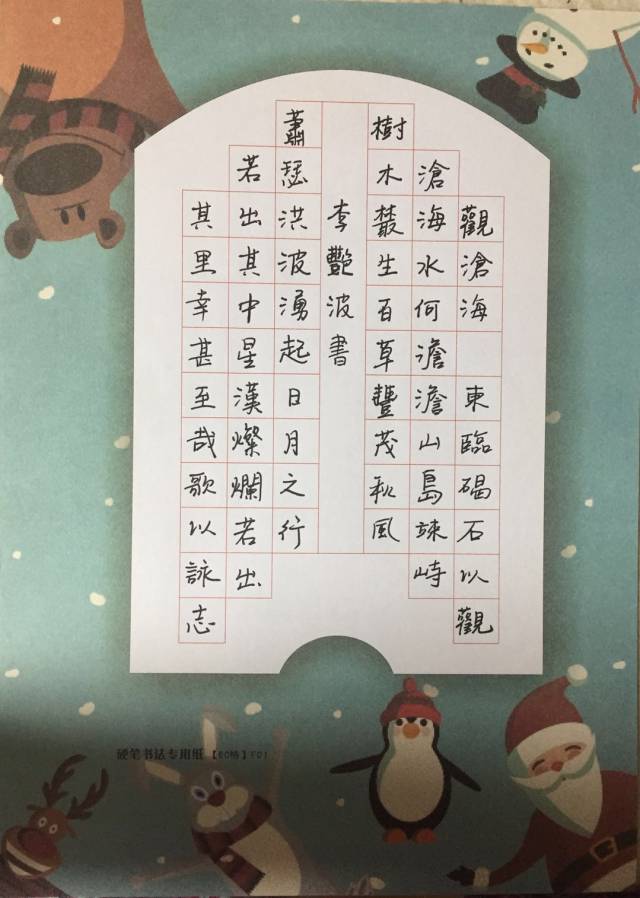 觀滄海 東臨碣石以觀
滄海水何澹澹山島竦峙
樹木叢生百草豐茂秋風
李艷波書
蕭瑟洪波湧起日月之行
若出其中星漢燦爛若出
其里幸甚至哉歌以詠志
硬笔书法专用纸【60格】F01